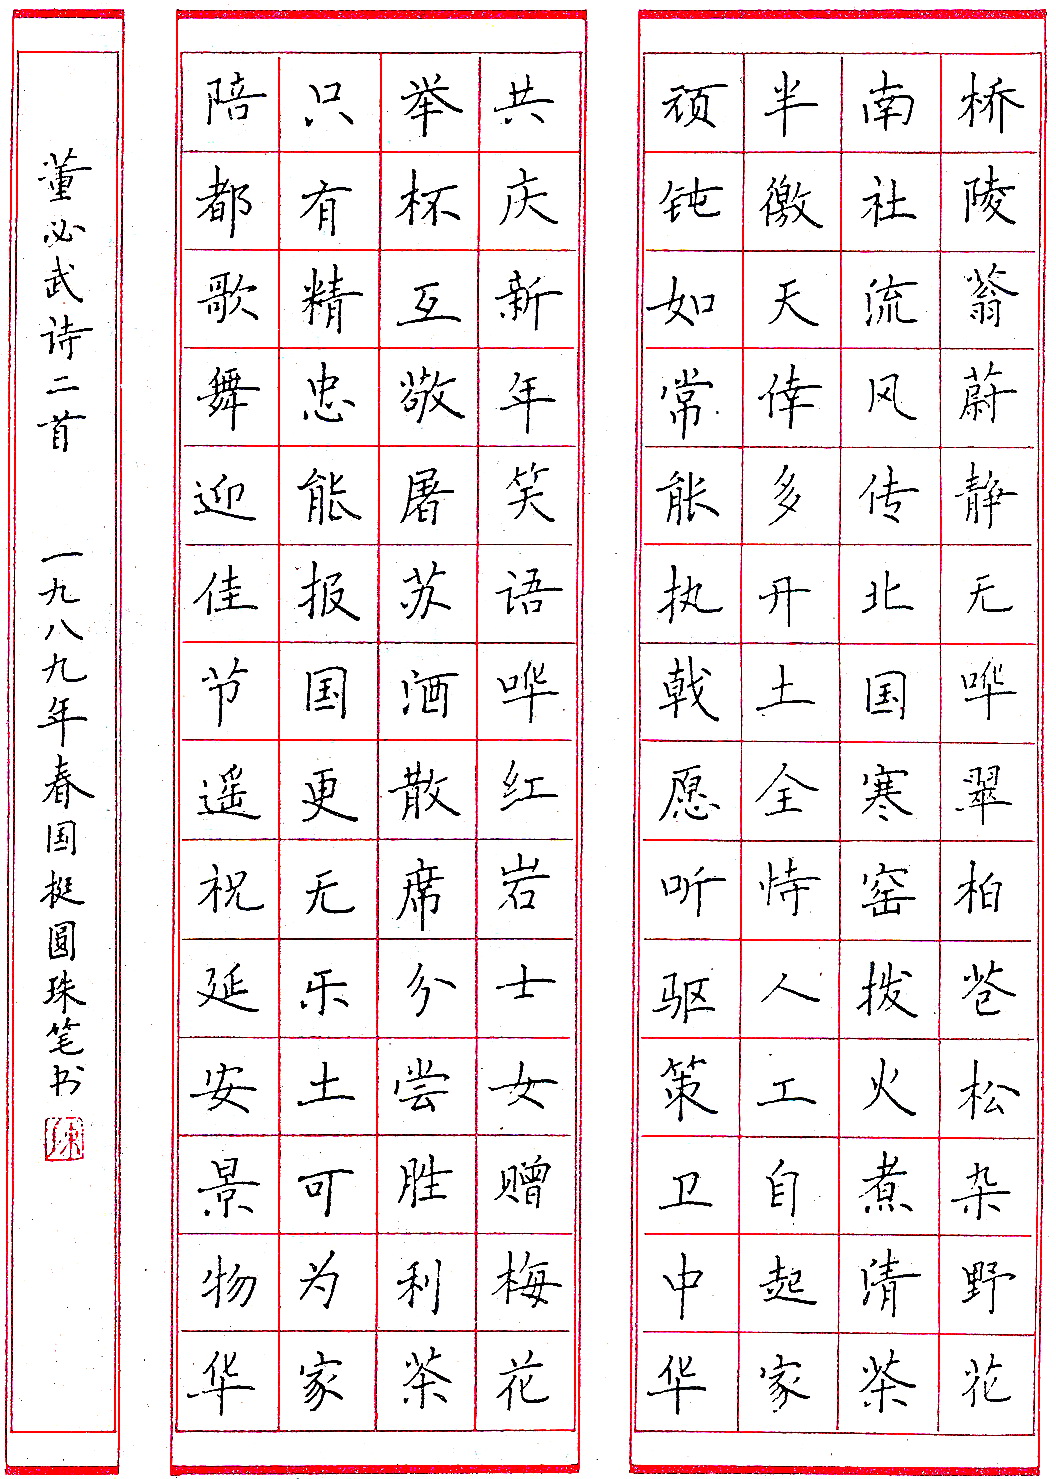 桥陵蓊蔚静无哗翠柏苍松杂野花
南社流风传北国寒窑拨火煮清茶
半徼天倖多开土全恃人工自起家
顽钝如常能执戟愿听驱策卫中华
共庆新年笑语哗红岩士女赠梅花
举杯互敬屠苏酒散席分尝胜利茶
只有精忠能报国更无乐土可为家
陪都歌舞迎佳节遥祝延安景物华
董必武诗二首 一九八九年春国挺圆珠笔书